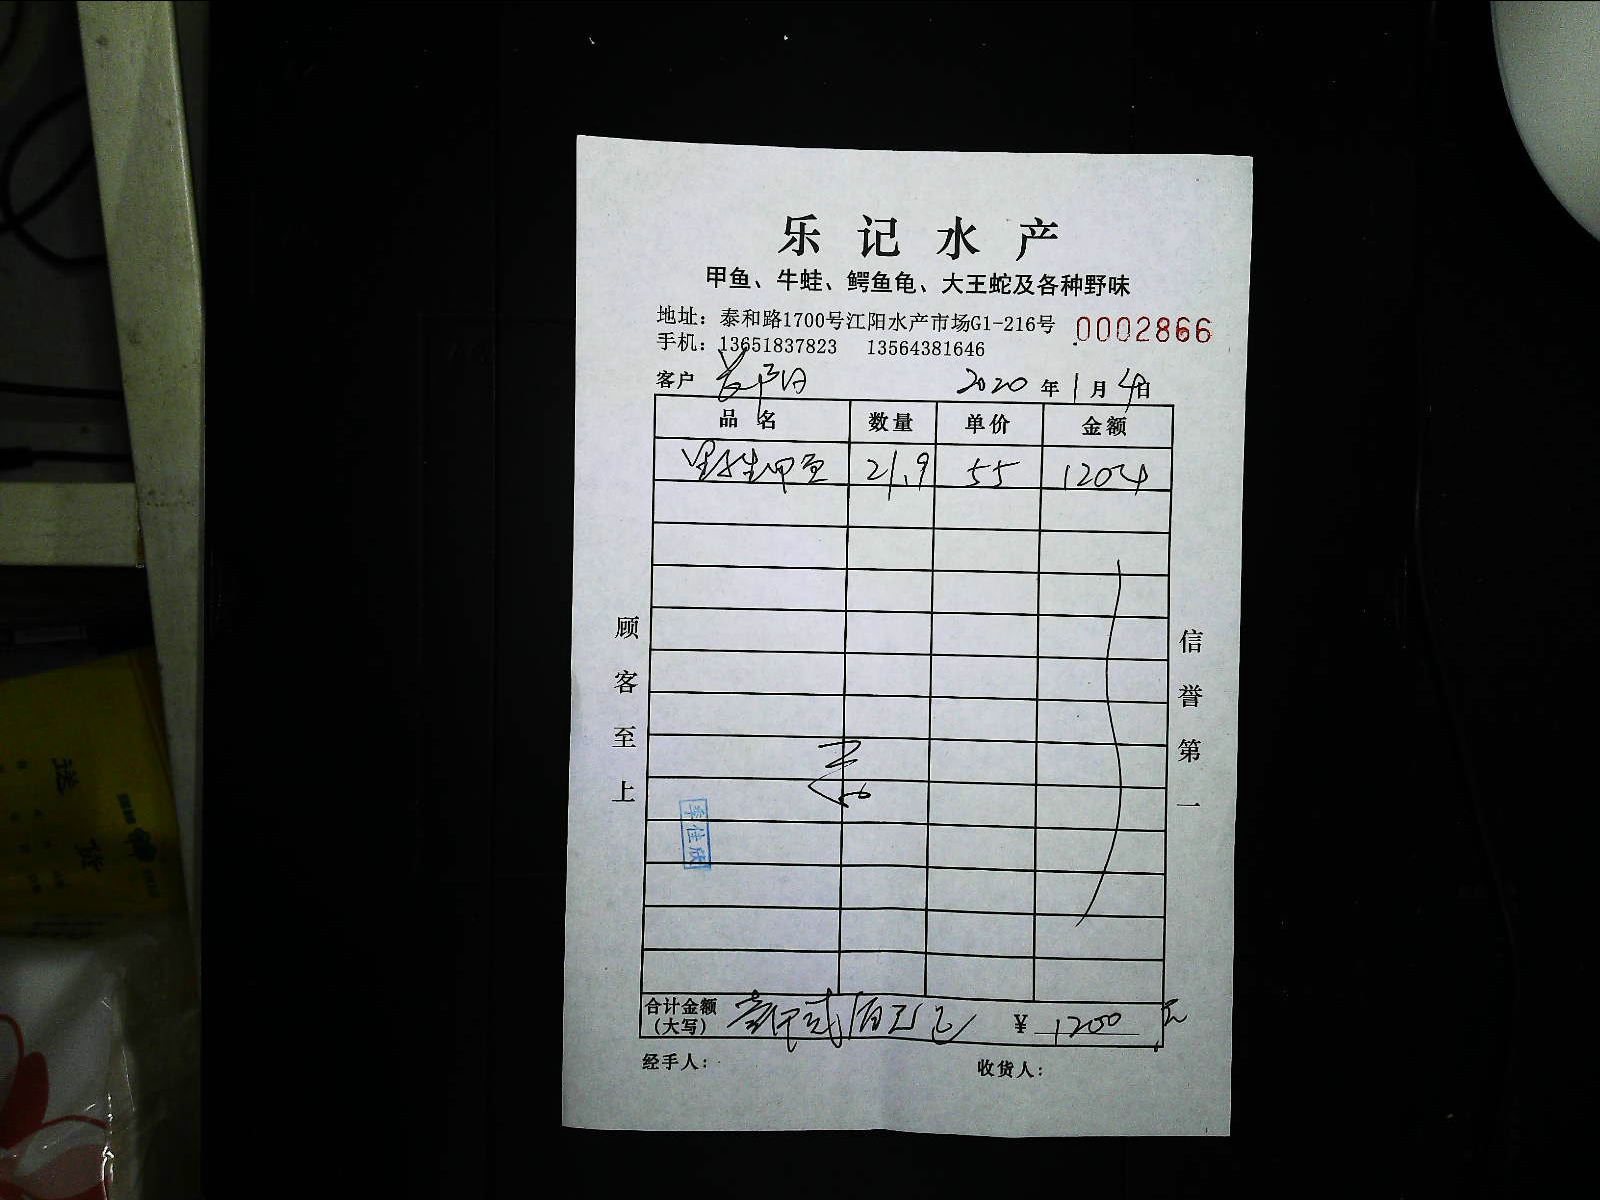 乐记水产
甲鱼、牛蛙、鳄鱼龟、大王蛇及各种野味
地址：泰和路1700号江阳水产市场G1-216号
0002866
手机：13651837823 13564381646
客户 2020年1月4日
品名 数量 单价 金额
野生甲鱼 21.9 55 1204
顾客至上
信誉第一
李佳欣
合计金额（大写） 壹仟贰佰元正 ¥ 1200 元
经手人： 收货人：
送
货